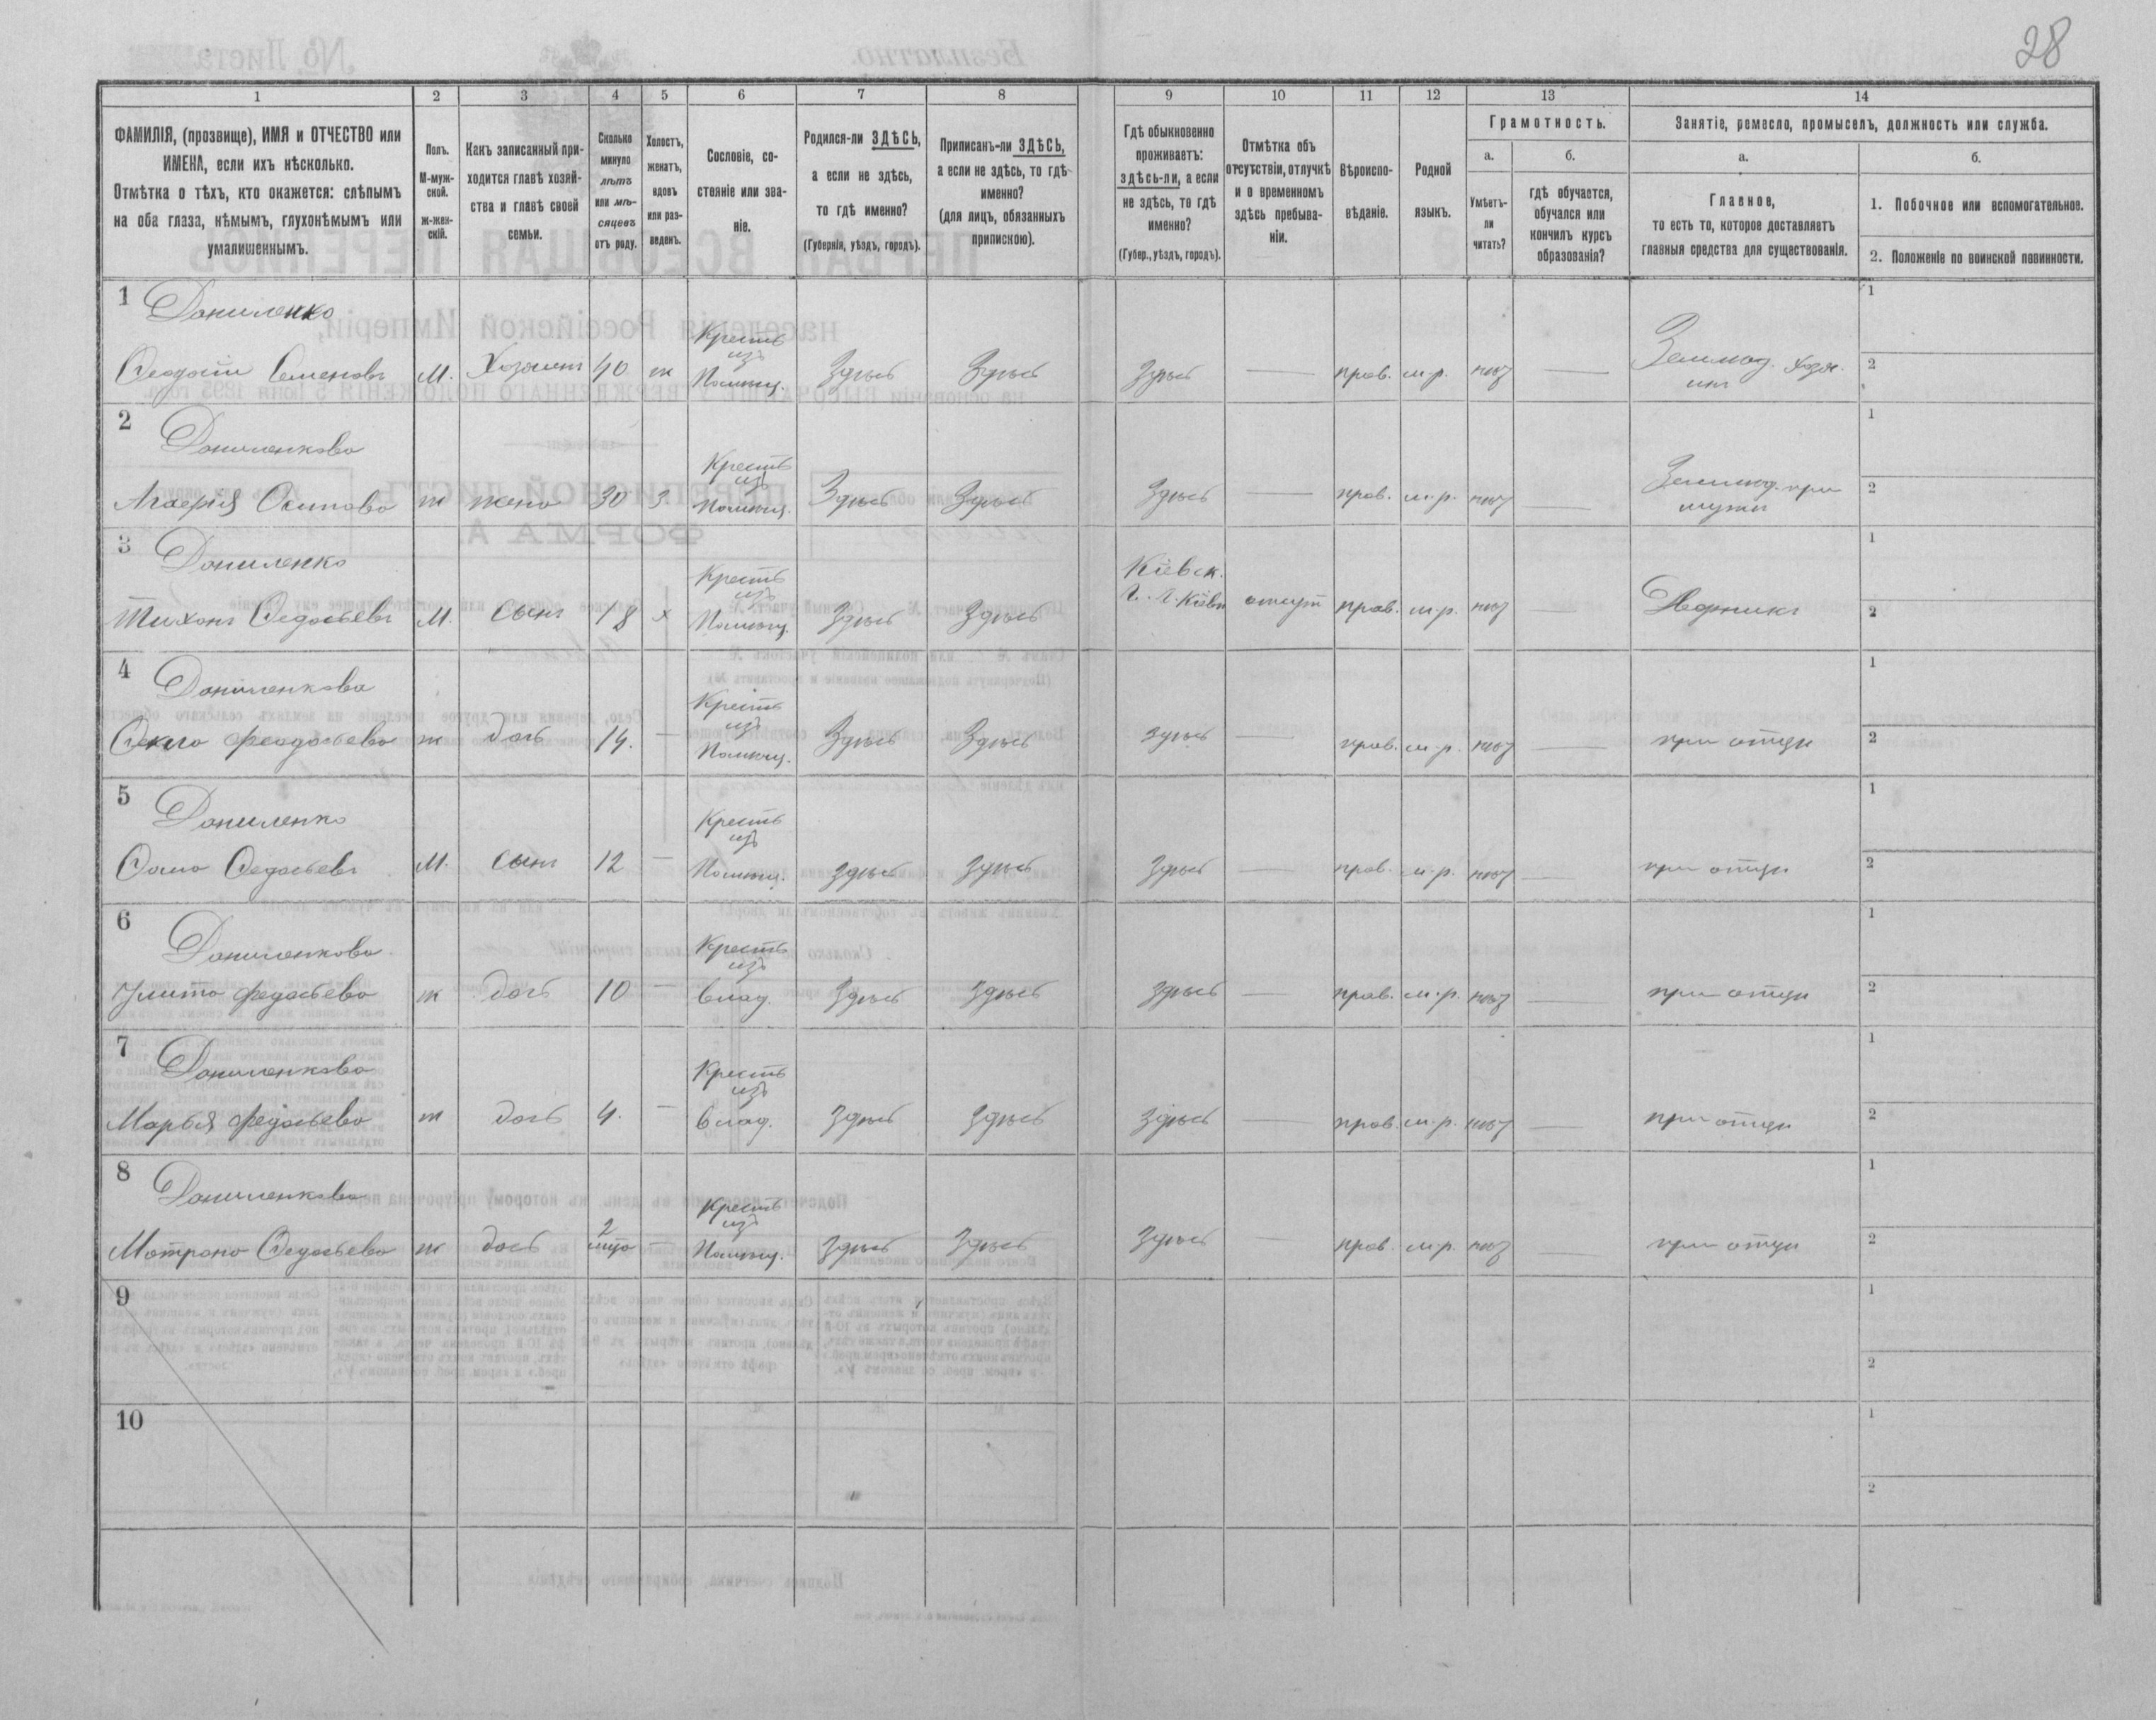 28
1 2 3 4 5 6 7 8 9 10 11 12 13 14
ФАМИЛІЯ, (прозвище), ИМЯ и ОТЧЕСТВО или
ИМЕНА, если ихъ нѣсколько.
Отмѣтка о тѣхъ, кто окажется: слѣпымъ
на оба глаза, нѣмымъ, глухонѣмымъ или
умалишеннымъ.
Полъ.
М-муж-
ской.
ж-жен-
скій.
Какъ записанный при-
ходится главѣ хозяй-
ства и главѣ своей
семьи.
Сколько
минуло
лѣтъ
или мѣ-
сяцевъ
отъ роду.
Холостъ,
женатъ,
вдовъ
или раз-
веденъ.
Сословіе, со-
стояніе или зва-
ніе.
Родился-ли ЗДѢСЬ,
а если не здѣсь,
то гдѣ именно?
(Губернія, уѣздъ, городъ).
Приписанъ-ли ЗДѢСЬ,
а если не здѣсь, то гдѣ
именно?
(для лицъ, обязанныхъ
припискою).
Гдѣ обыкновенно
проживаетъ:
здѣсь-ли, а если
не здѣсь, то гдѣ
именно?
(Губер., уѣздъ, городъ).
Отмѣтка объ
отсутствіи, отлучкѣ
и о временномъ
здѣсь пребыва-
ніи.
Вѣроиспо-
вѣданіе.
Родной
языкъ.
Грамотность.
а.
Умѣетъ-
ли
читать?
б.
гдѣ обучается,
обучался или
кончилъ курсъ
образованія?
Занятіе, ремесло, промыселъ, должность или служба.
а.
Главное,
то есть то, которое доставляетъ
главныя средства для существованія.
б.
1. Побочное или вспомогательное.
2. Положеніе по воинской повинности.
1 Даниленко
Крестъ
изъ
Феодосій Семеновъ М. Хозяинъ 40 ж Помѣщ. Здѣсь Здѣсь Здѣсь — прав. м.р. нѣт — Землед. хозя-
инъ
1
2
2 Даниленкова
Крестъ
изъ
Осипова ж жена 30 з. Помѣщ. Здѣсь Здѣсь Здѣсь — прав. м.р. нѣт — Землед. при
мужѣ
1
2
3 Даниленко
Крестъ
изъ
Тихонъ Федосьевъ М. сынъ 18 х Помѣщ. Здѣсь Здѣсь Кіевск.
Г. Г. Кіевъ отсут прав. м.р. нѣт — Дворникъ
1
2
4 Даниленкова
Крестъ
изъ
Фекла феодосьева ж дочь 14. — Помѣщ. Здѣсь Здѣсь здѣсь — прав. м.р. нѣт — при отцѣ
1
2
5 Даниленко
Крестъ
изъ
Фома Федосьевъ М. сынъ 12 — Помѣщ. здѣсь здѣсь здѣсь — прав. м.р. нѣт — при отцѣ
1
2
6 Даниленкова
Крестъ
изъ
Улита федосьева ж дочь 10 — влад. здѣсь здѣсь здѣсь — прав. м.р. нѣт — при отцѣ
1
2
7 Даниленкова
Крестъ
изъ
Марья федосьева ж дочь 4. — влад. здѣсь здѣсь здѣсь — прав. м.р. нѣт — при отцѣ
1
2
8 Даниленкова
Крестъ
изъ
Мотрона Федосьева ж дочь 2
мца — Помѣщ. здѣсь здѣсь здѣсь — прав. м.р. нѣт — при отцѣ
1
2
9
1
2
10
1
2